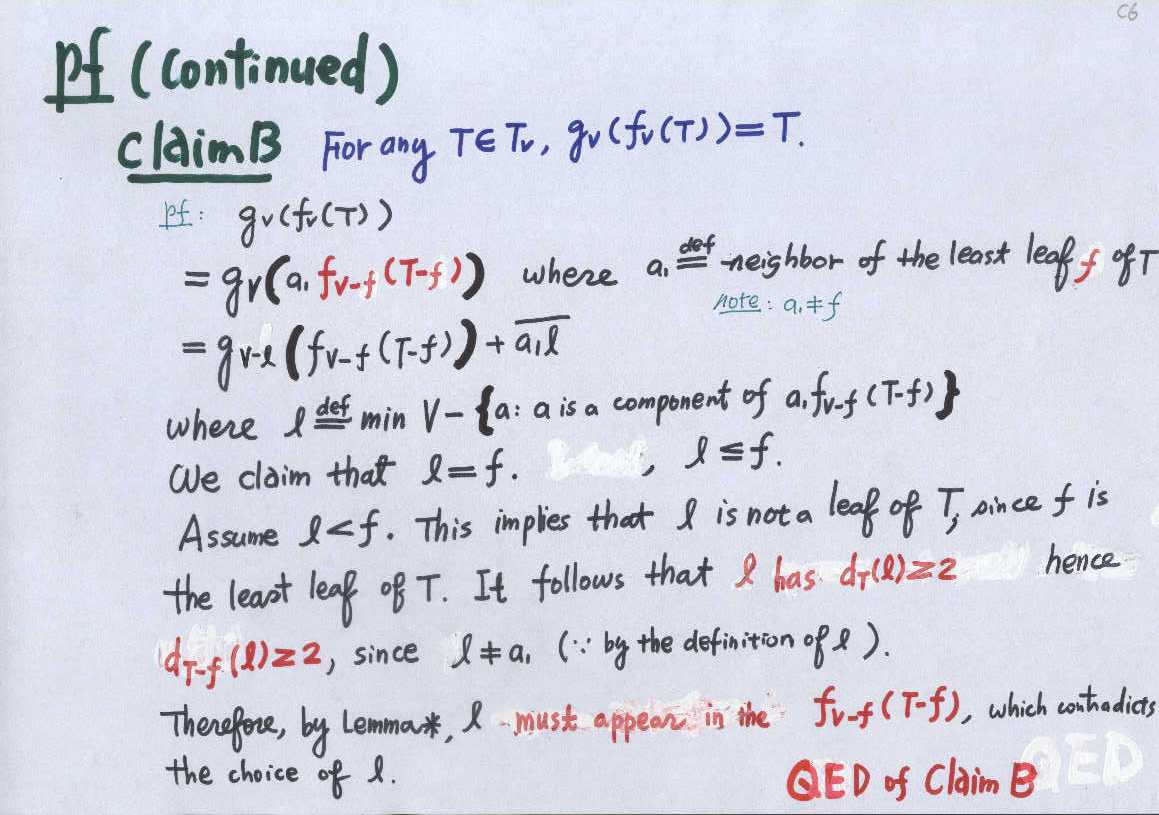 C6
pf (continued)
claim B For any T∈T_V, g_V(f_V(T))=T.
pf: g_V(f_V(T))
= g_V(a₁ f_{V-f}(T-f)) where a₁ ≝ neighbor of the least leaf f of T
note: a₁≠f
= g_{V-ℓ}(f_{V-f}(T-f)) + \overline{a₁ℓ}
where ℓ ≝ min V - {a: a is a component of a₁f_{V-f}(T-f)}
We claim that ℓ=f. , ℓ≤f.
Assume ℓ<f. This implies that ℓ is not a leaf of T, since f is
the least leaf of T. It follows that ℓ has d_T(ℓ)≥2 hence
d_{T-f}(ℓ)≥2, since ℓ≠a₁ (∵ by the definition of ℓ).
Therefore, by Lemma*, ℓ must appear in the f_{V-f}(T-f), which contradicts
the choice of ℓ.
QED of Claim B QED